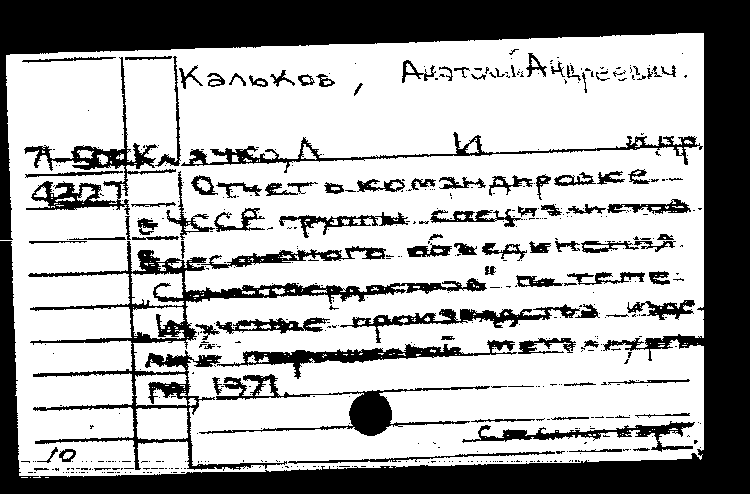 Кальков, Анатолий Андреевич.
71-50 Клячко, Л И и др.
42127 Отчет о командировке
в ЧССР группы специалистов
Всесоюзного объединения
„Союзтвердосплав" по теме
„Изучение производства изде-
лий порошковой металлургии
М, 1971.
10